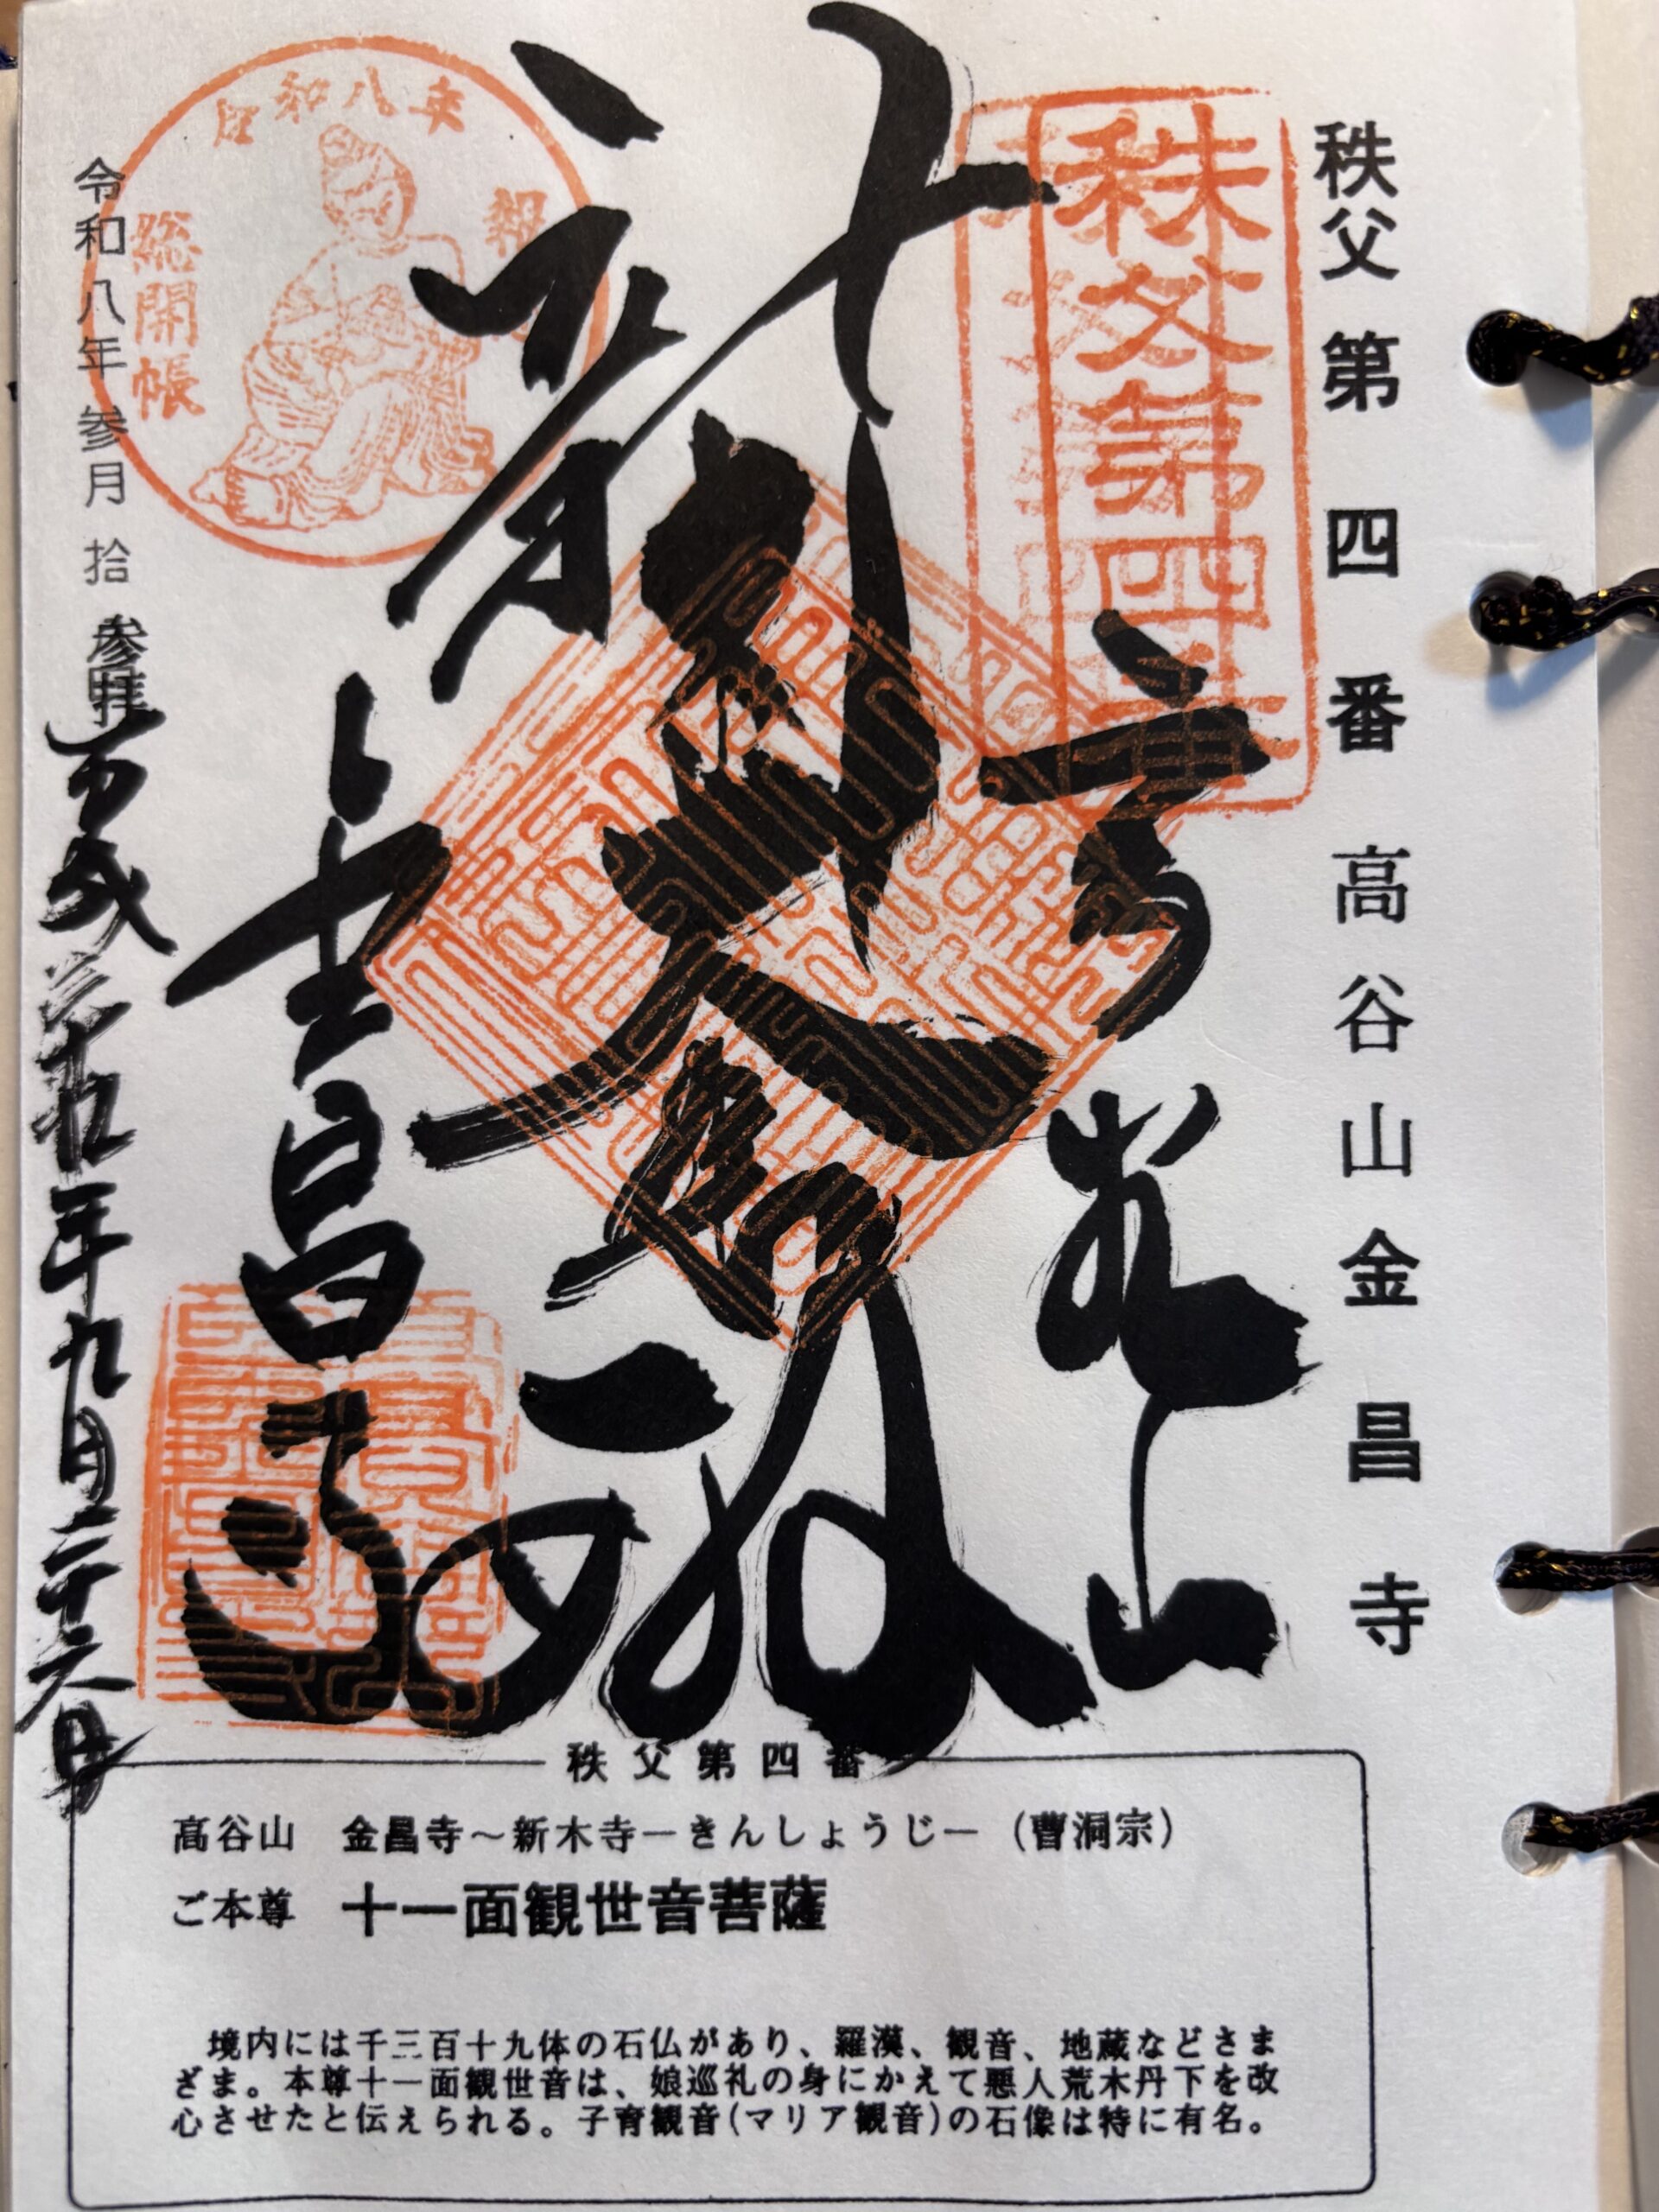 秩父第四番 高谷山金昌寺
秩父第四番
高谷山
新
昌寺
令和八年
総開帳
令和八年参月拾
参拝
平成二十九年九月二十六日
秩父第四番
高谷山 金昌寺〜新木寺―きんしょうじ―（曹洞宗）
ご本尊 十一面観世音菩薩
境内には千三百十九体の石仏があり、羅漢、観音、地蔵などさま
ざま。本尊十一面観世音は、娘巡礼の身にかえて悪人荒木丹下を改
心させたと伝えられる。子育観音(マリア観音)の石像は特に有名。